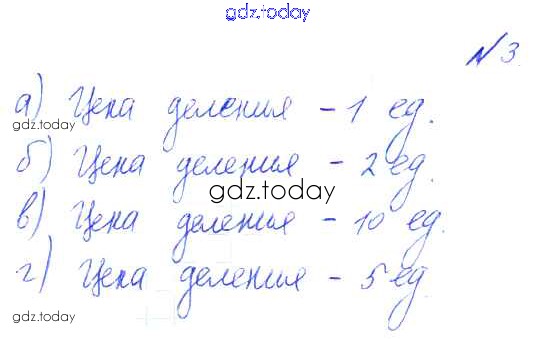 gdz.today
№ 3.
а) Цена деления - 1 ед.
gdz.today
б) Цена деления - 2 ед.
gdz.today
в) Цена деления - 10 ед.
г) Цена деления - 5 ед
gdz.today
gdz.today